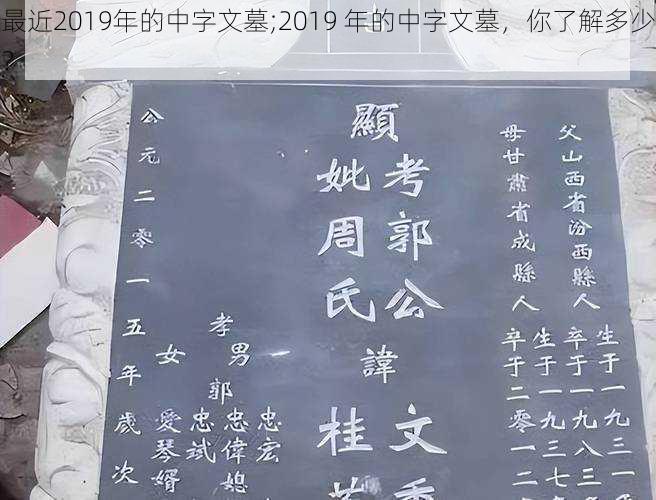 最近2019年的中字文墓;2019 年的中字文墓，你了解多少
父山西省汾西縣人
生于一九三一
卒于一九八三
母甘肅省成縣人
生于一九三七
卒于二零一二
顯
考郭公
妣周氏
諱
文
桂
孝男郭
忠宏
忠偉媳
忠斌
女
愛琴婿
公元二零一五年歲次